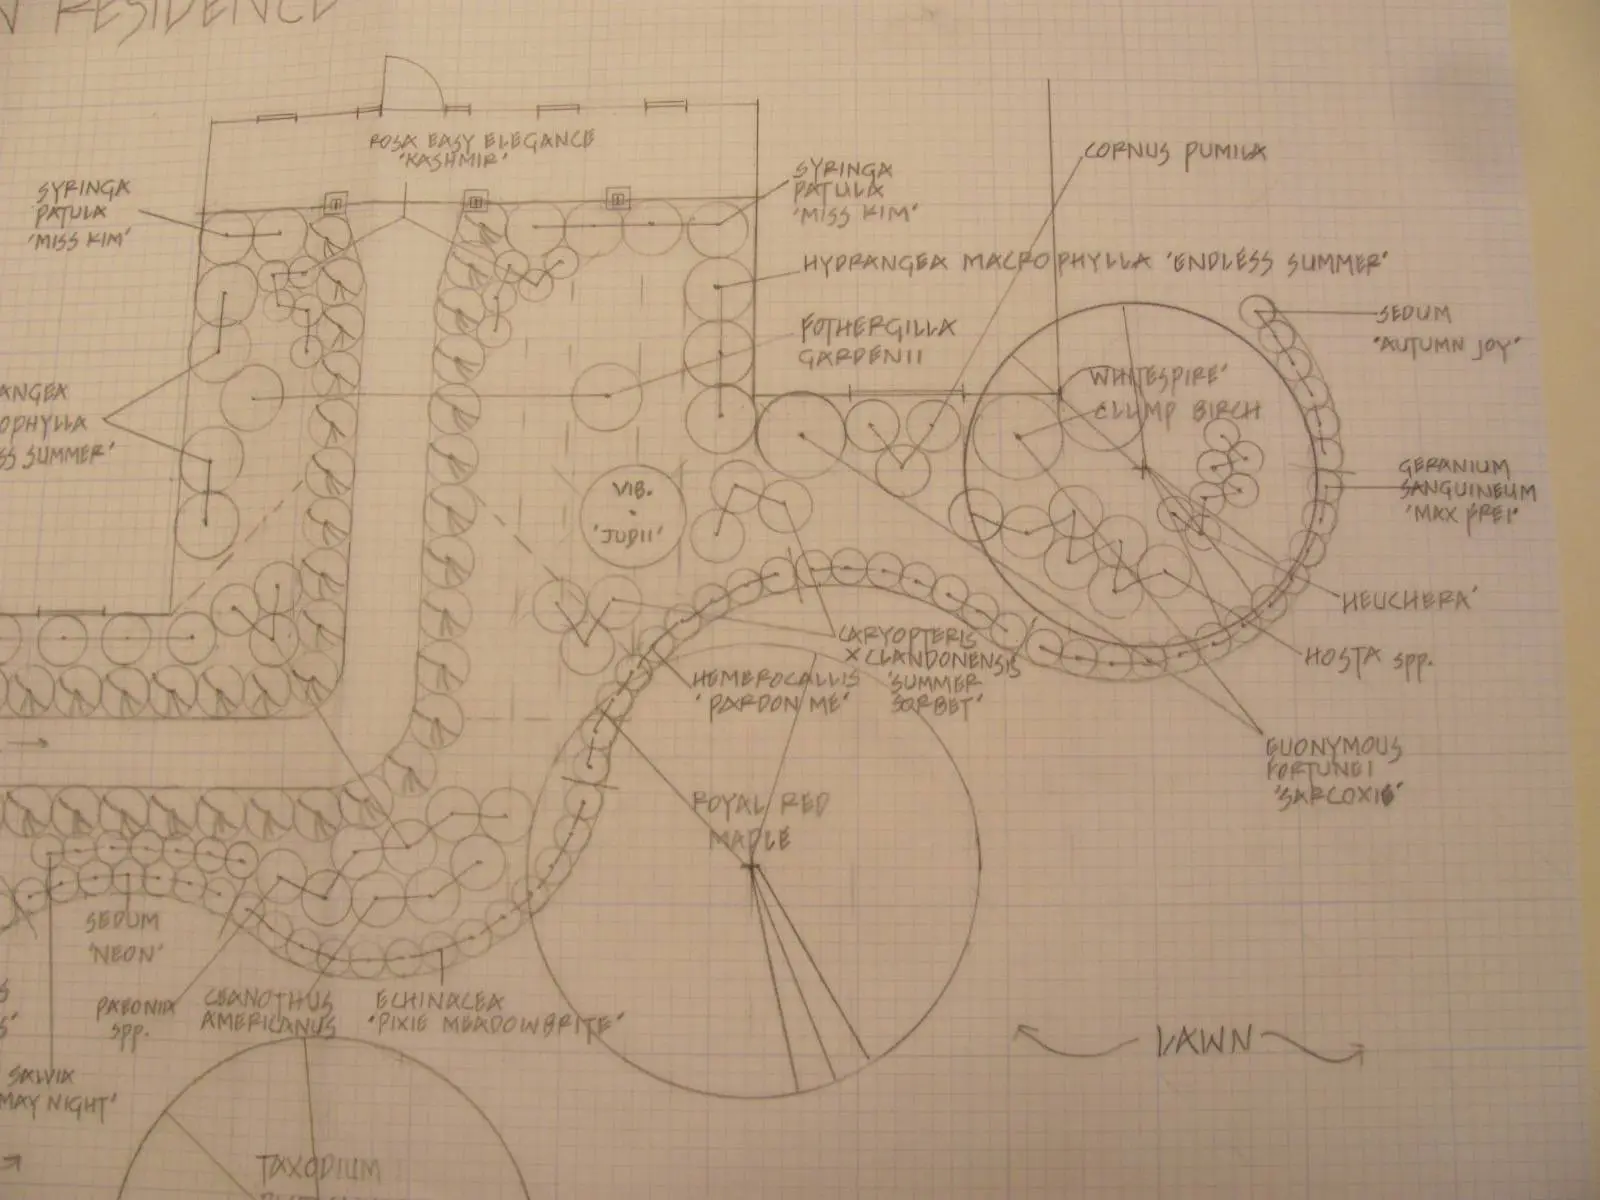 N RESIDENCE
ROSA EASY ELEGANCE
'KASHMIR'
SYRINGA
PATULA
'MISS KIM'
SYRINGA
PATULA
'MISS KIM'
CORNUS PUMILA
HYDRANGEA MACROPHYLLA 'ENDLESS SUMMER'
FOTHERGILLA
GARDENII
SEDUM
'AUTUMN JOY'
'WHITESPIRE'
CLUMP BIRCH
ANGEA
OPHYLLA
SS SUMMER'
VIB.
'JUDII'
GERANIUM
SANGUINEUM
'MAX FREI'
HEUCHERA'
HOSTA spp.
CARYOPTERIS
X CLANDONENSIS
'SUMMER
SORBET'
HEMEROCALLIS
'PARDON ME'
EUONYMOUS
FORTUNEI
'SARCOXIE'
ROYAL RED
MAPLE
SEDUM
'NEON'
PAEONIA
spp.
CEANOTHUS
AMERICANUS
ECHINACEA
'PIXIE MEADOWBRITE'
LAWN
SALVIA
MAY NIGHT'
TAXODIUM